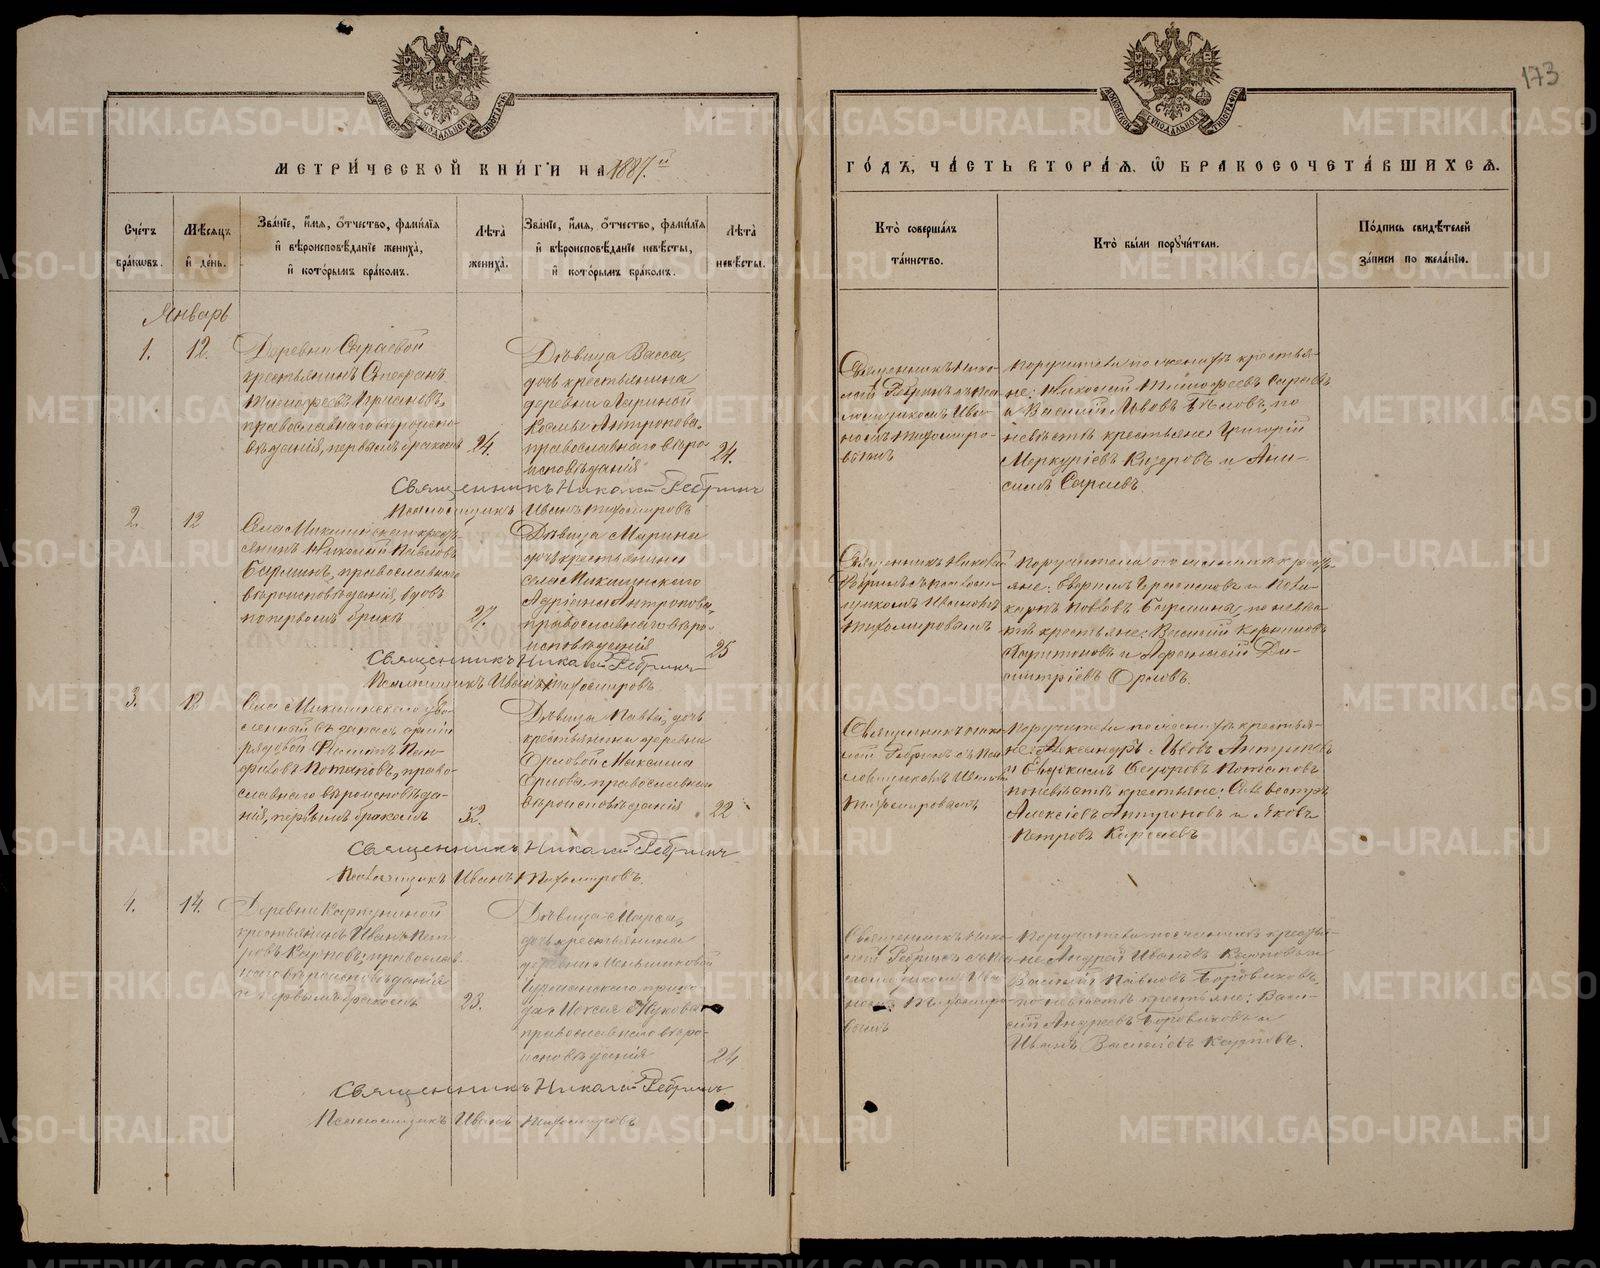 173
МЕТРИ́ЧЕСКОЙ КНИ́ГИ НА 1887.й
ГО́ДЪ, ЧА́СТЬ ВТОРА́Я, Ѿ БРАКОСОЧЕТА́ВШИХСЯ.
Сче́тъ бра́кѡвъ.
Мѣ́сяцъ и҆ де́нь.
Зва́нїе, и҆́мя, ѻ҆́тчество, фами́лїя и҆ вѣроисповѣ́данїе жениха́, и҆ кото́рымъ бра́комъ.
Лѣта̀ жениха̀.
Зва́нїе, и҆́мя, ѻ҆́тчество, фами́лїя и҆ вѣроисповѣ́данїе невѣ́сты, и҆ кото́рымъ бра́комъ.
Лѣта̀ невѣ́сты.
Кто̀ соверша́лъ та́инство.
Кто̀ бы́ли порꙋчи́тели.
По́дпись свидѣ́телей за́писи по жела́нїю.
Январь
1.
12.
Деревни Сыраевой
крестьянинъ Стефанъ
Тимофеевъ
православнаго вѣроиспо-
вѣданія, первымъ бракомъ
24.
Дѣвица Васса,
дочь крестьянина
деревни Лариной
Козьмы Антропова,
православнаго вѣро-
исповѣданія
24.
Священникъ Нико-
лай Ребринъ съ Пса-
ломщикомъ Ива-
номъ Тихомиро-
вымъ
Поручители по женихѣ крестья-
не: Николай Тимофеевъ Сыраевъ
и Василій Львовъ Бѣловъ, по
невѣстѣ крестьяне: Григорій
Меркуріевъ Кизеровъ и Ани-
симъ Сыраевъ.
Священникъ Николай Ребринъ
Псаломщикъ Иванъ Тихомировъ
2.
12
Села Микшинскаго крест-
янинъ Николай Павловъ
православнаго
вѣроисповѣданія, вдовъ
по первомъ бракѣ
27.
Дѣвица Марина
дочь крестьянина
села Микшинскаго
Адріана Антропова,
православнаго вѣро-
исповѣданія
25
Священникъ Николай
Ребринъ съ Псалом-
щикомъ Иваномъ
Тихомировымъ
Поручители по женихѣ крестъ-
яне:
Павловъ по невѣс-
тѣ крестьяне: Василій
Харитоновъ и Афанасій Ди-
митріевъ Орловъ.
Священникъ Николай Ребринъ
Псаломщикъ Иванъ Тихомировъ.
3.
12
Села Микшинскаго уво-
ленный въ запасъ арміи
рядовой Филиппъ Пан-
филовъ Потаповъ, право-
славнаго вѣроисповѣда-
нія, первымъ бракомъ
32.
Дѣвица Павла, дочь
крестьянина деревни
Орловой Максима
Орлова, православнаго
вѣроисповѣданія
22
Священникъ Нико-
лай Ребринъ съ Пса-
ломщикомъ Иваномъ
Тихомировымъ
Поручители по женихѣ крестья-
не: Александръ Львовъ Антроповъ
и Евдокимъ Ѳедоровъ Потаповъ
по невѣстѣ крестьяне: Сильвестръ
Алексіевъ Антроповъ и Яковъ
Петровъ
Священникъ Николай Ребринъ
Псаломщикъ Иванъ Тихомировъ.
4.
14.
Деревни Карпуниной
крестьянинъ Иванъ Пет-
ровъ Карповъ, православ-
наго вѣроисповѣданія
и первымъ бракомъ
23.
Дѣвица Марѳа,
дочь крестьянина
деревни Меньшиковой
прихо-
да Жукова
православнаго вѣро-
исповѣданія
24
Священникъ Нико-
лай Ребринъ съ Пса-
ломщикомъ Ива-
номъ Тихомиро-
вымъ
Поручители по женихѣ крестья-
не Андрей Ивановъ Карповъ и
Василій Павловъ Боровиковъ,
по невѣстѣ крестьяне: Васи-
лій Андреевъ Боровиковъ и
Иванъ Васильевъ
Священникъ Николай Ребринъ
Псаломщикъ Иванъ Тихомировъ
METRIKI.GASO-URAL.RU